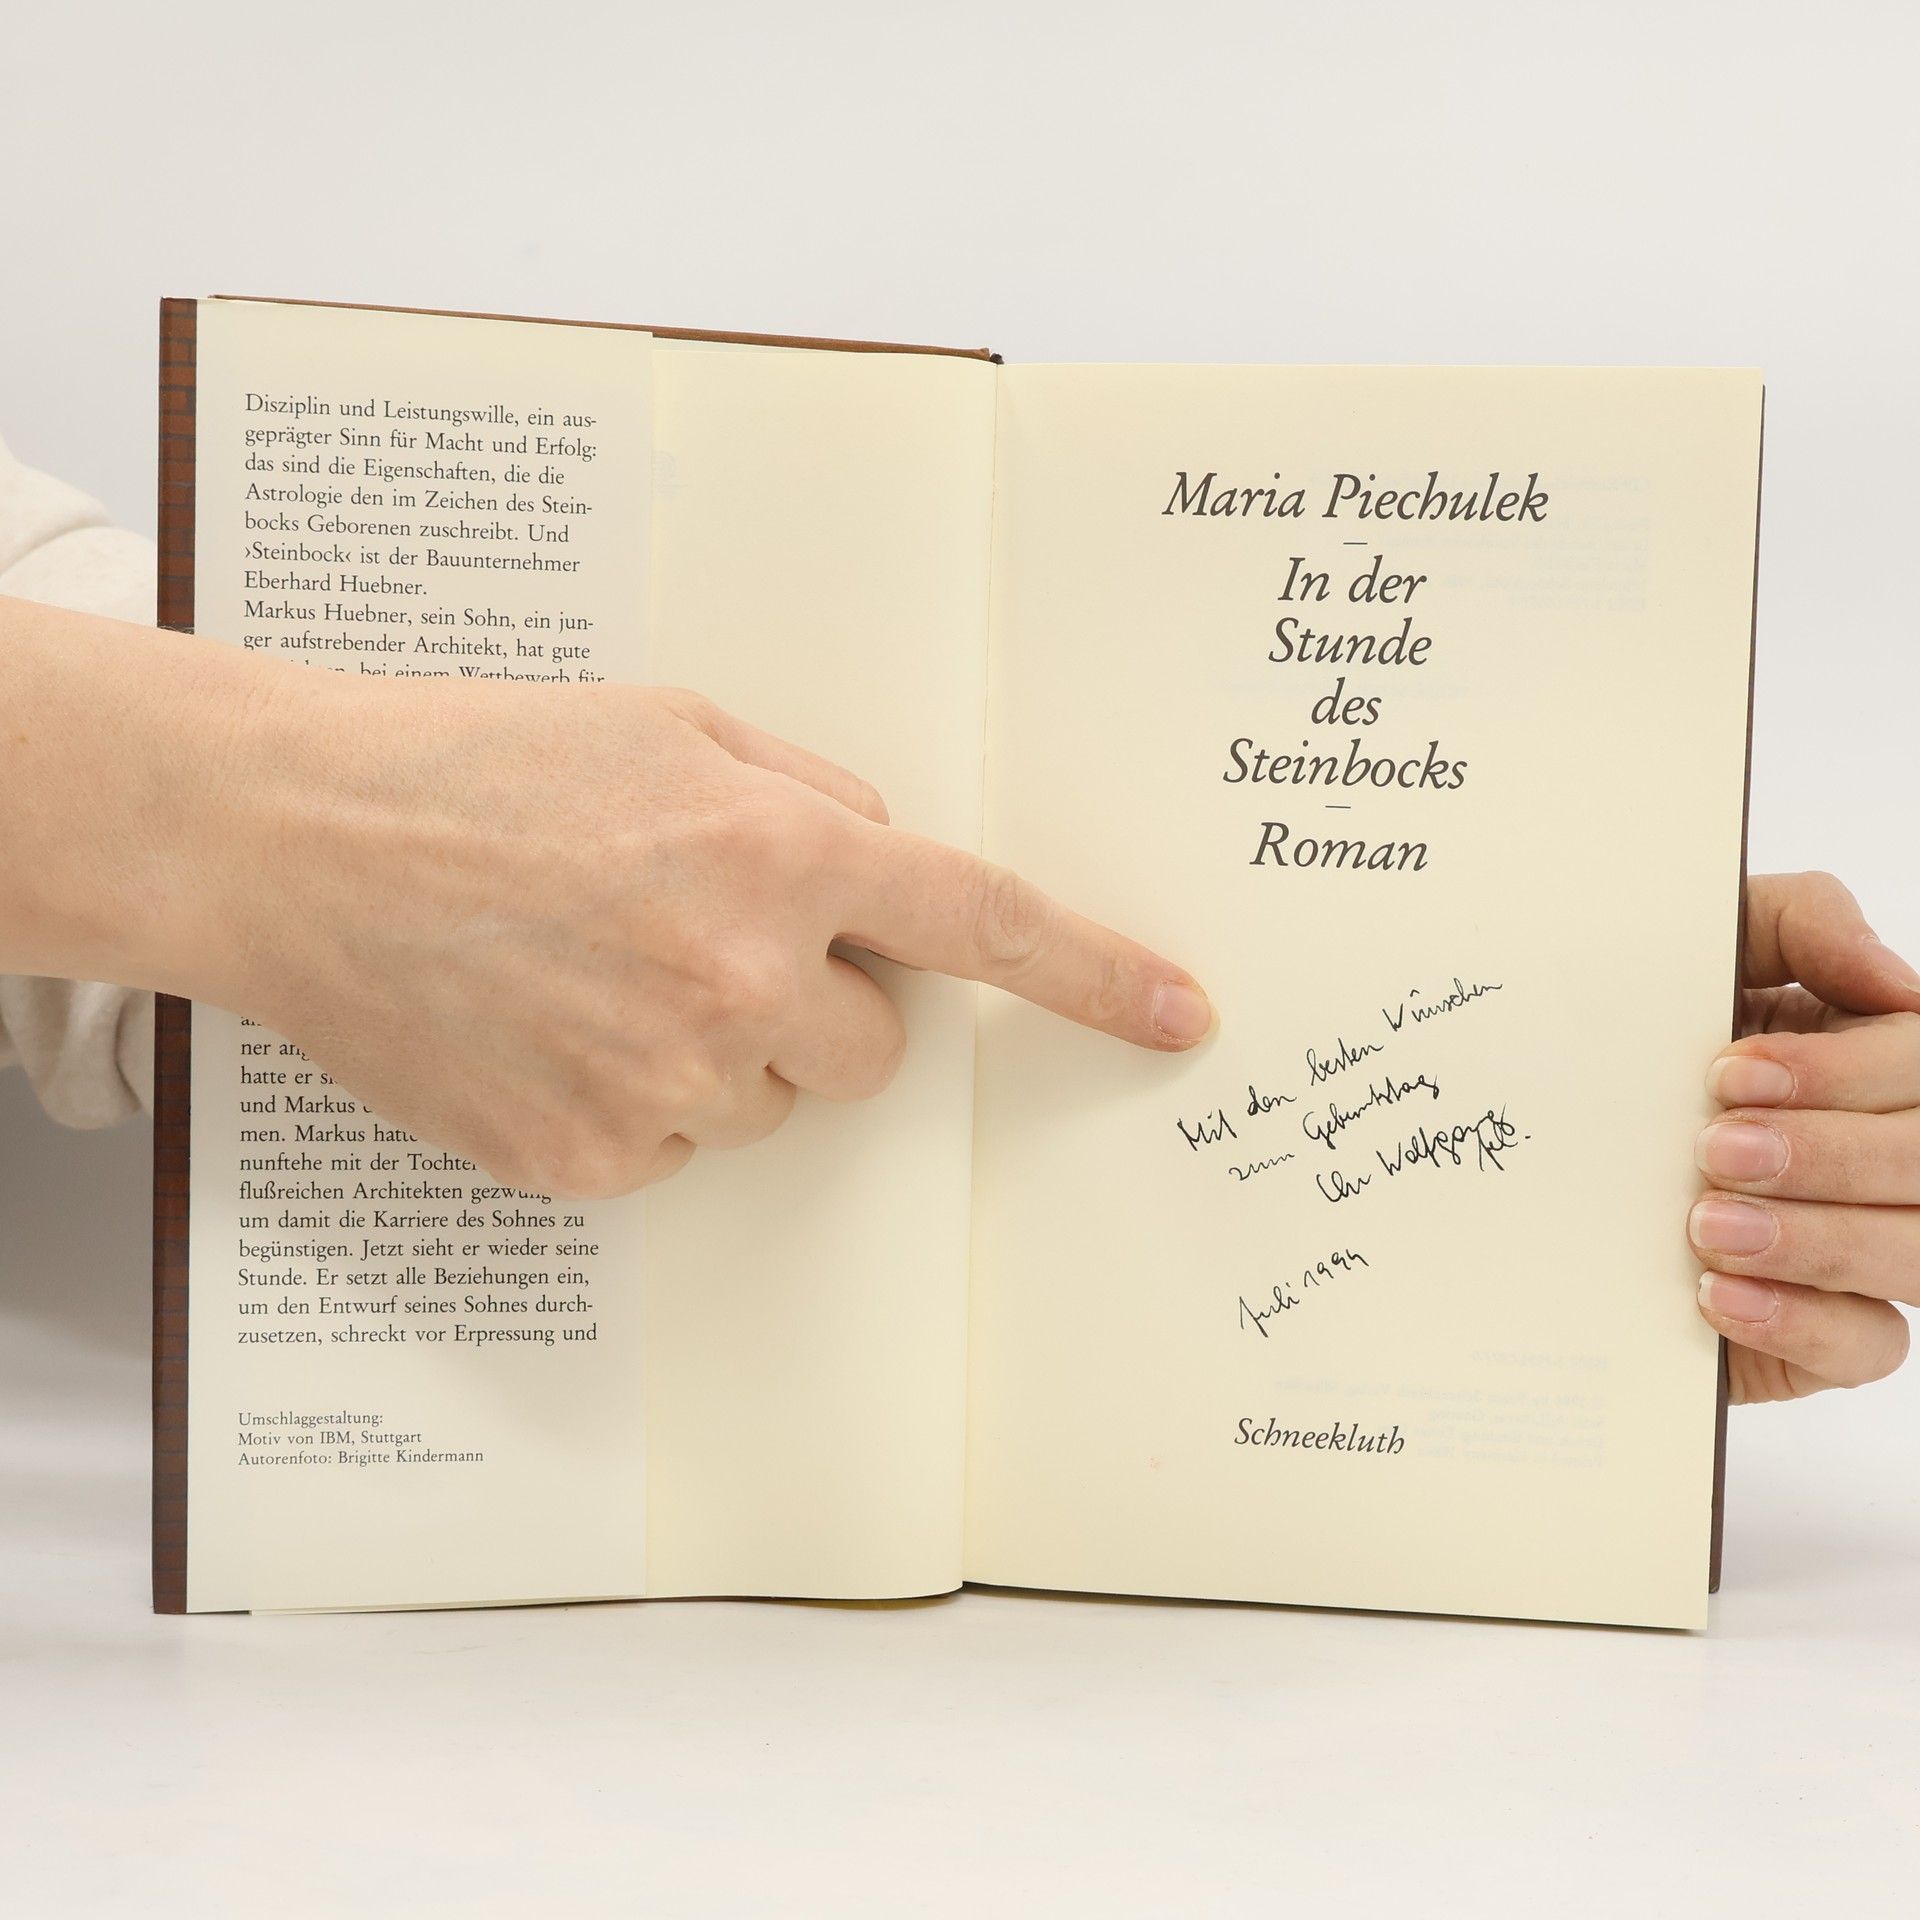 Disziplin und Leistungswille, ein aus-
geprägter Sinn für Macht und Erfolg:
das sind die Eigenschaften, die die
Astrologie den im Zeichen des Stein-
bocks Geborenen zuschreibt. Und
›Steinbock‹ ist der Bauunternehmer
Eberhard Huebner.
Markus Huebner, sein Sohn, ein jun-
ger aufstrebender Architekt, hat gute
bei einem Wettbewerb für
ner
hatte er
und Markus
men. Markus
nunftehe mit der
flußreichen Architekten
um damit die Karriere des Sohnes zu
begünstigen. Jetzt sieht er wieder seine
Stunde. Er setzt alle Beziehungen ein,
um den Entwurf seines Sohnes durch-
zusetzen, schreckt vor Erpressung und
Umschlaggestaltung:
Motiv von IBM, Stuttgart
Autorenfoto: Brigitte Kindermann
Maria Piechulek
In der
Stunde
des
Steinbocks
Roman
Mit den besten Wünschen
zum Geburtstag
Wolfgang
Juli 1994
Schneekluth